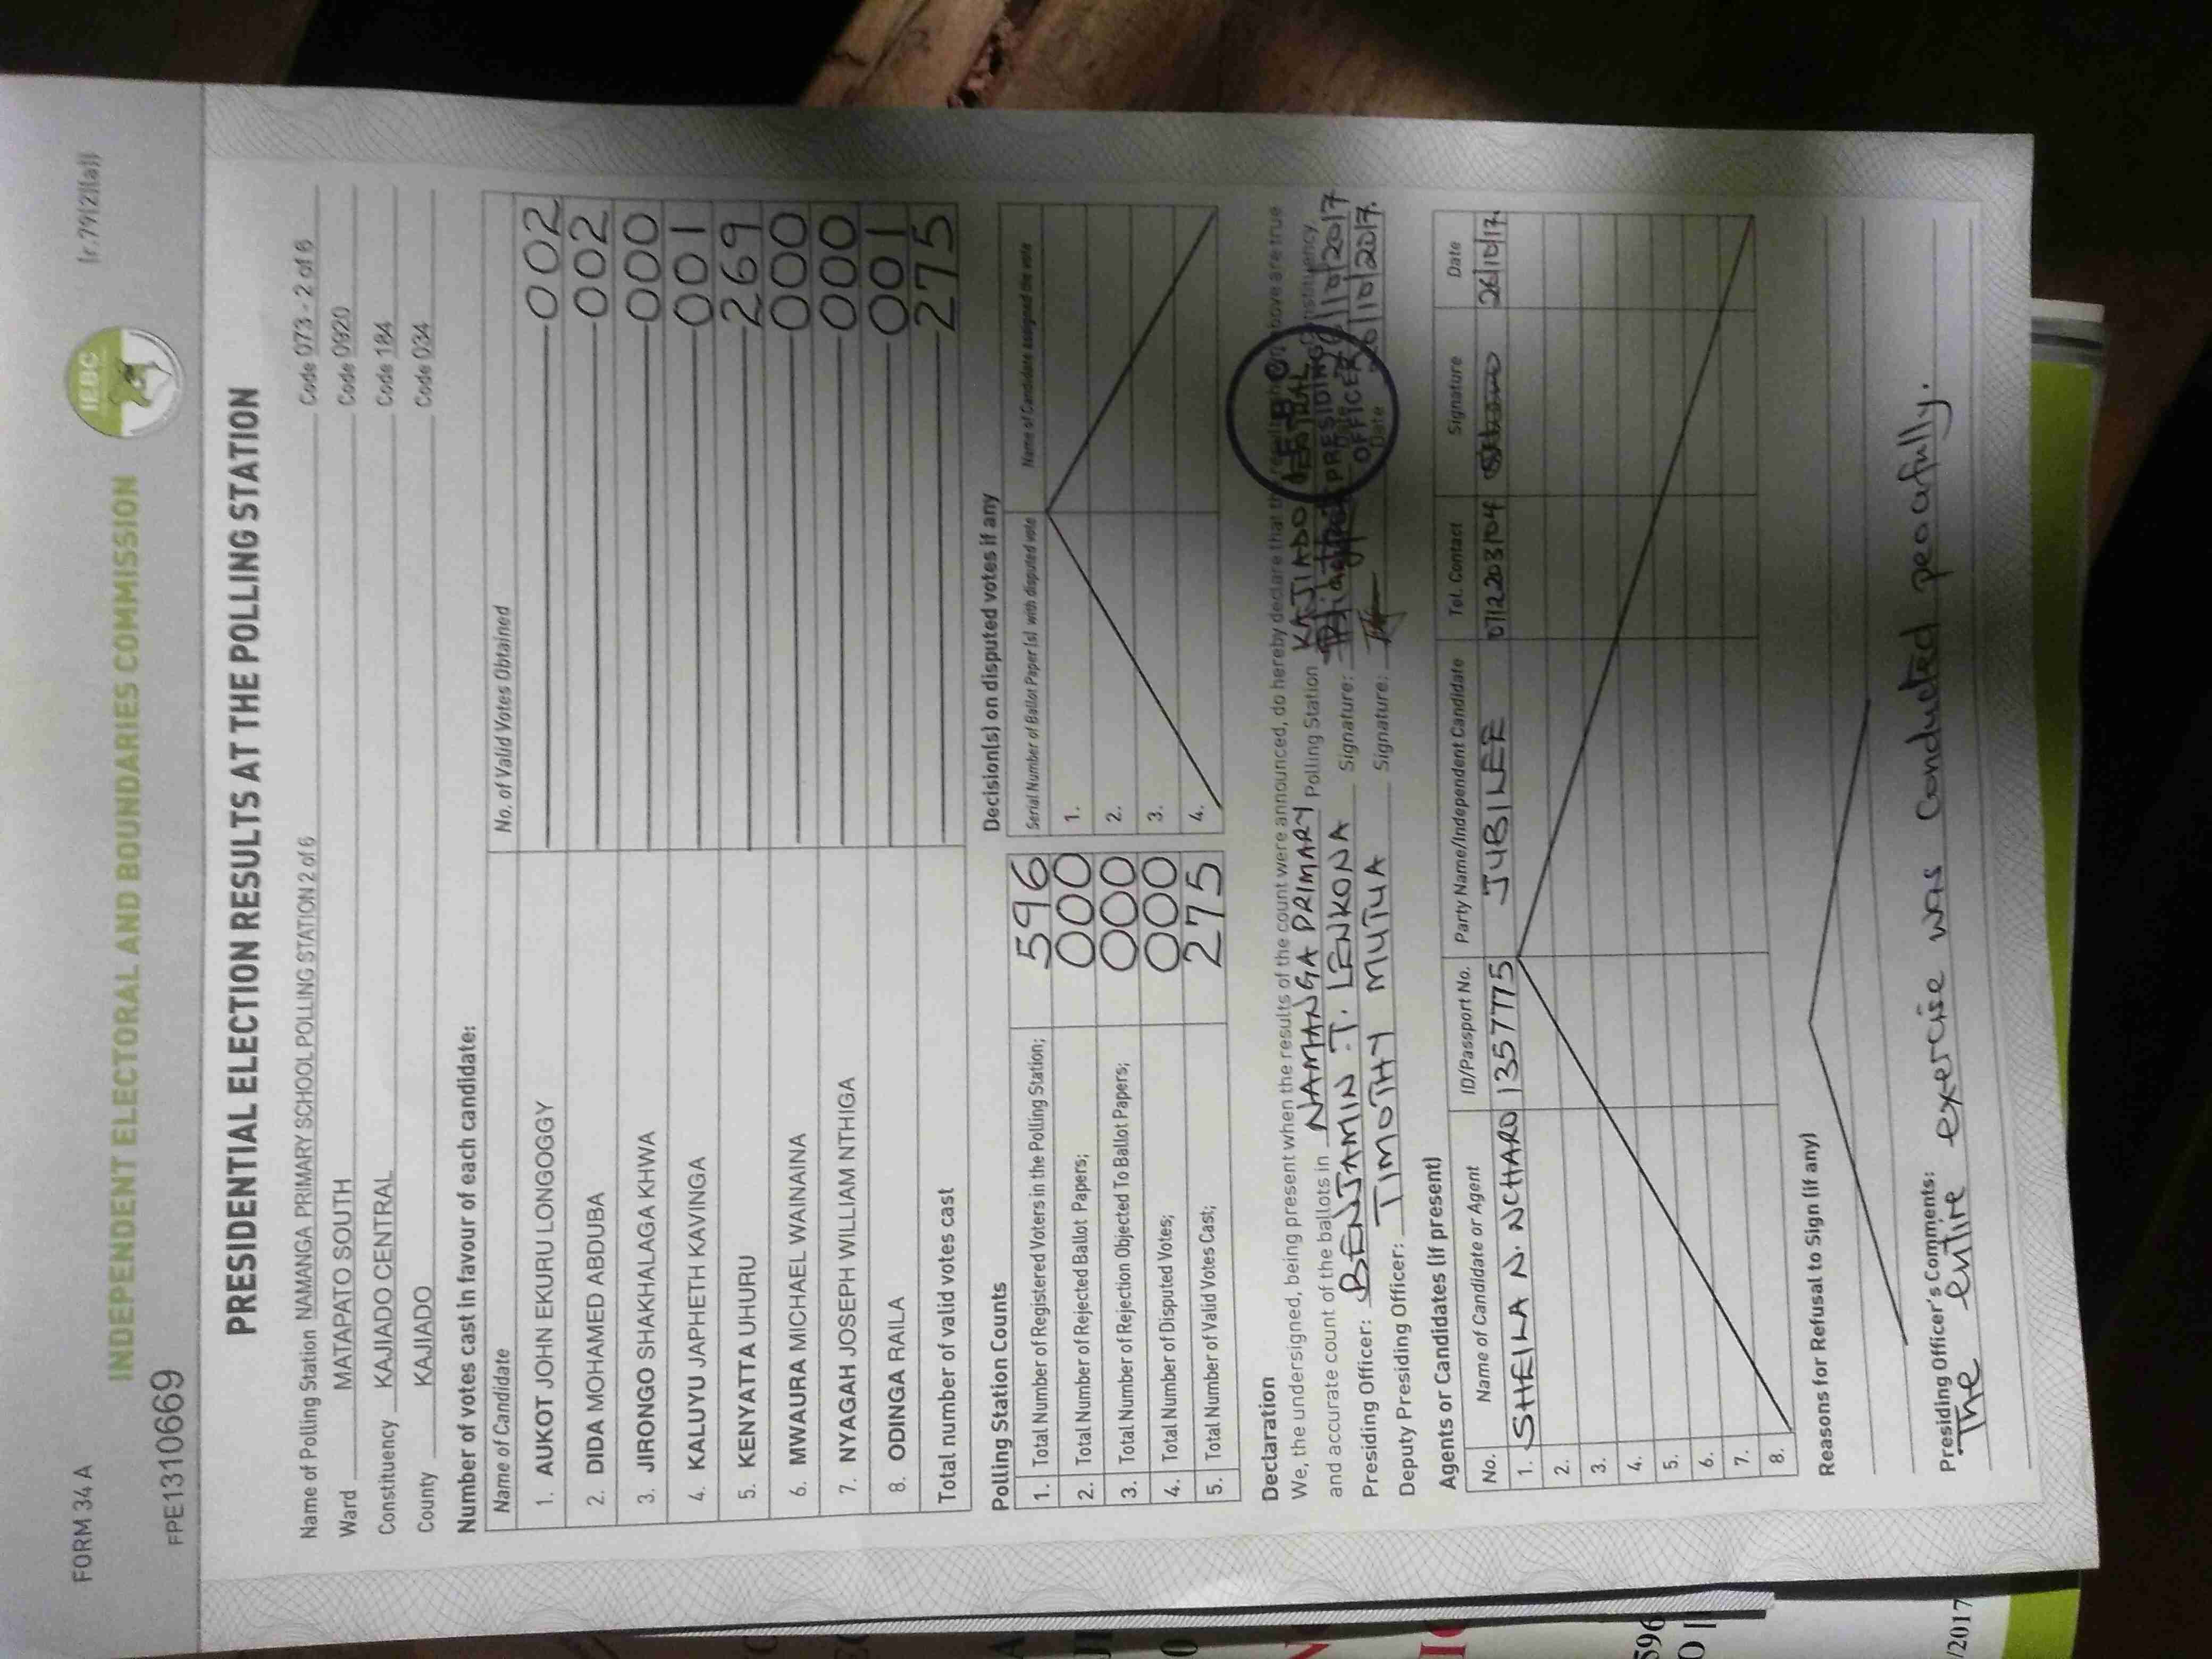 FORM 34 A
(r.79(2)(a))
IEBC
INDEPENDENT ELECTORAL AND BOUNDARIES COMMISSION
FPE1310669
PRESIDENTIAL ELECTION RESULTS AT THE POLLING STATION
Name of Polling Station NAMANGA PRIMARY SCHOOL POLLING STATION 2 of 6 Code 073 - 2 of 6
Ward MATAPATO SOUTH Code 0920
Constituency KAJIADO CENTRAL Code 184
County KAJIADO Code 034
Number of votes cast in favour of each candidate:
Name of Candidate No. of Valid Votes Obtained
1. AUKOT JOHN EKURU LONGOGGY 002
2. DIDA MOHAMED ABDUBA 002
3. JIRONGO SHAKHALAGA KHWA 000
4. KALUYU JAPHETH KAVINGA 001
5. KENYATTA UHURU 269
6. MWAURA MICHAEL WAINAINA 000
7. NYAGAH JOSEPH WILLIAM NTHIGA 000
8. ODINGA RAILA 001
Total number of valid votes cast 275
Polling Station Counts
1. Total Number of Registered Voters in the Polling Station; 596
2. Total Number of Rejected Ballot Papers; 000
3. Total Number of Rejection Objected To Ballot Papers; 000
4. Total Number of Disputed Votes; 000
5. Total Number of Valid Votes Cast; 275
Decision(s) on disputed votes if any
Serial Number of Ballot Paper (s) with disputed vote Name of Candidate assigned the vote
1.
2.
3.
4.
Declaration
We, the undersigned, being present when the results of the count were announced, do hereby declare that the results shown above are true
and accurate count of the ballots in NAMANGA PRIMARY Polling Station KAJIADO CENTRAL Constituency.
Presiding Officer: BENJAMIN T. LENKONA Signature: Date 26/10/2017
Deputy Presiding Officer: TIMOTHY MUTUA Signature: Date 26/10/2017.
PRESIDING
OFFICER
Agents or Candidates (if present)
No. Name of Candidate or Agent ID/Passport No. Party Name/Independent Candidate Tel. Contact Signature Date
1. SHEILA N. NCHARO 1357775 JUBILEE 0712203104 26/10/17.
2.
3.
4.
5.
6.
7.
8.
Reasons for Refusal to Sign (if any)
Presiding Officer's Comments:
The entire exercise was conducted peafully.
596
/2017